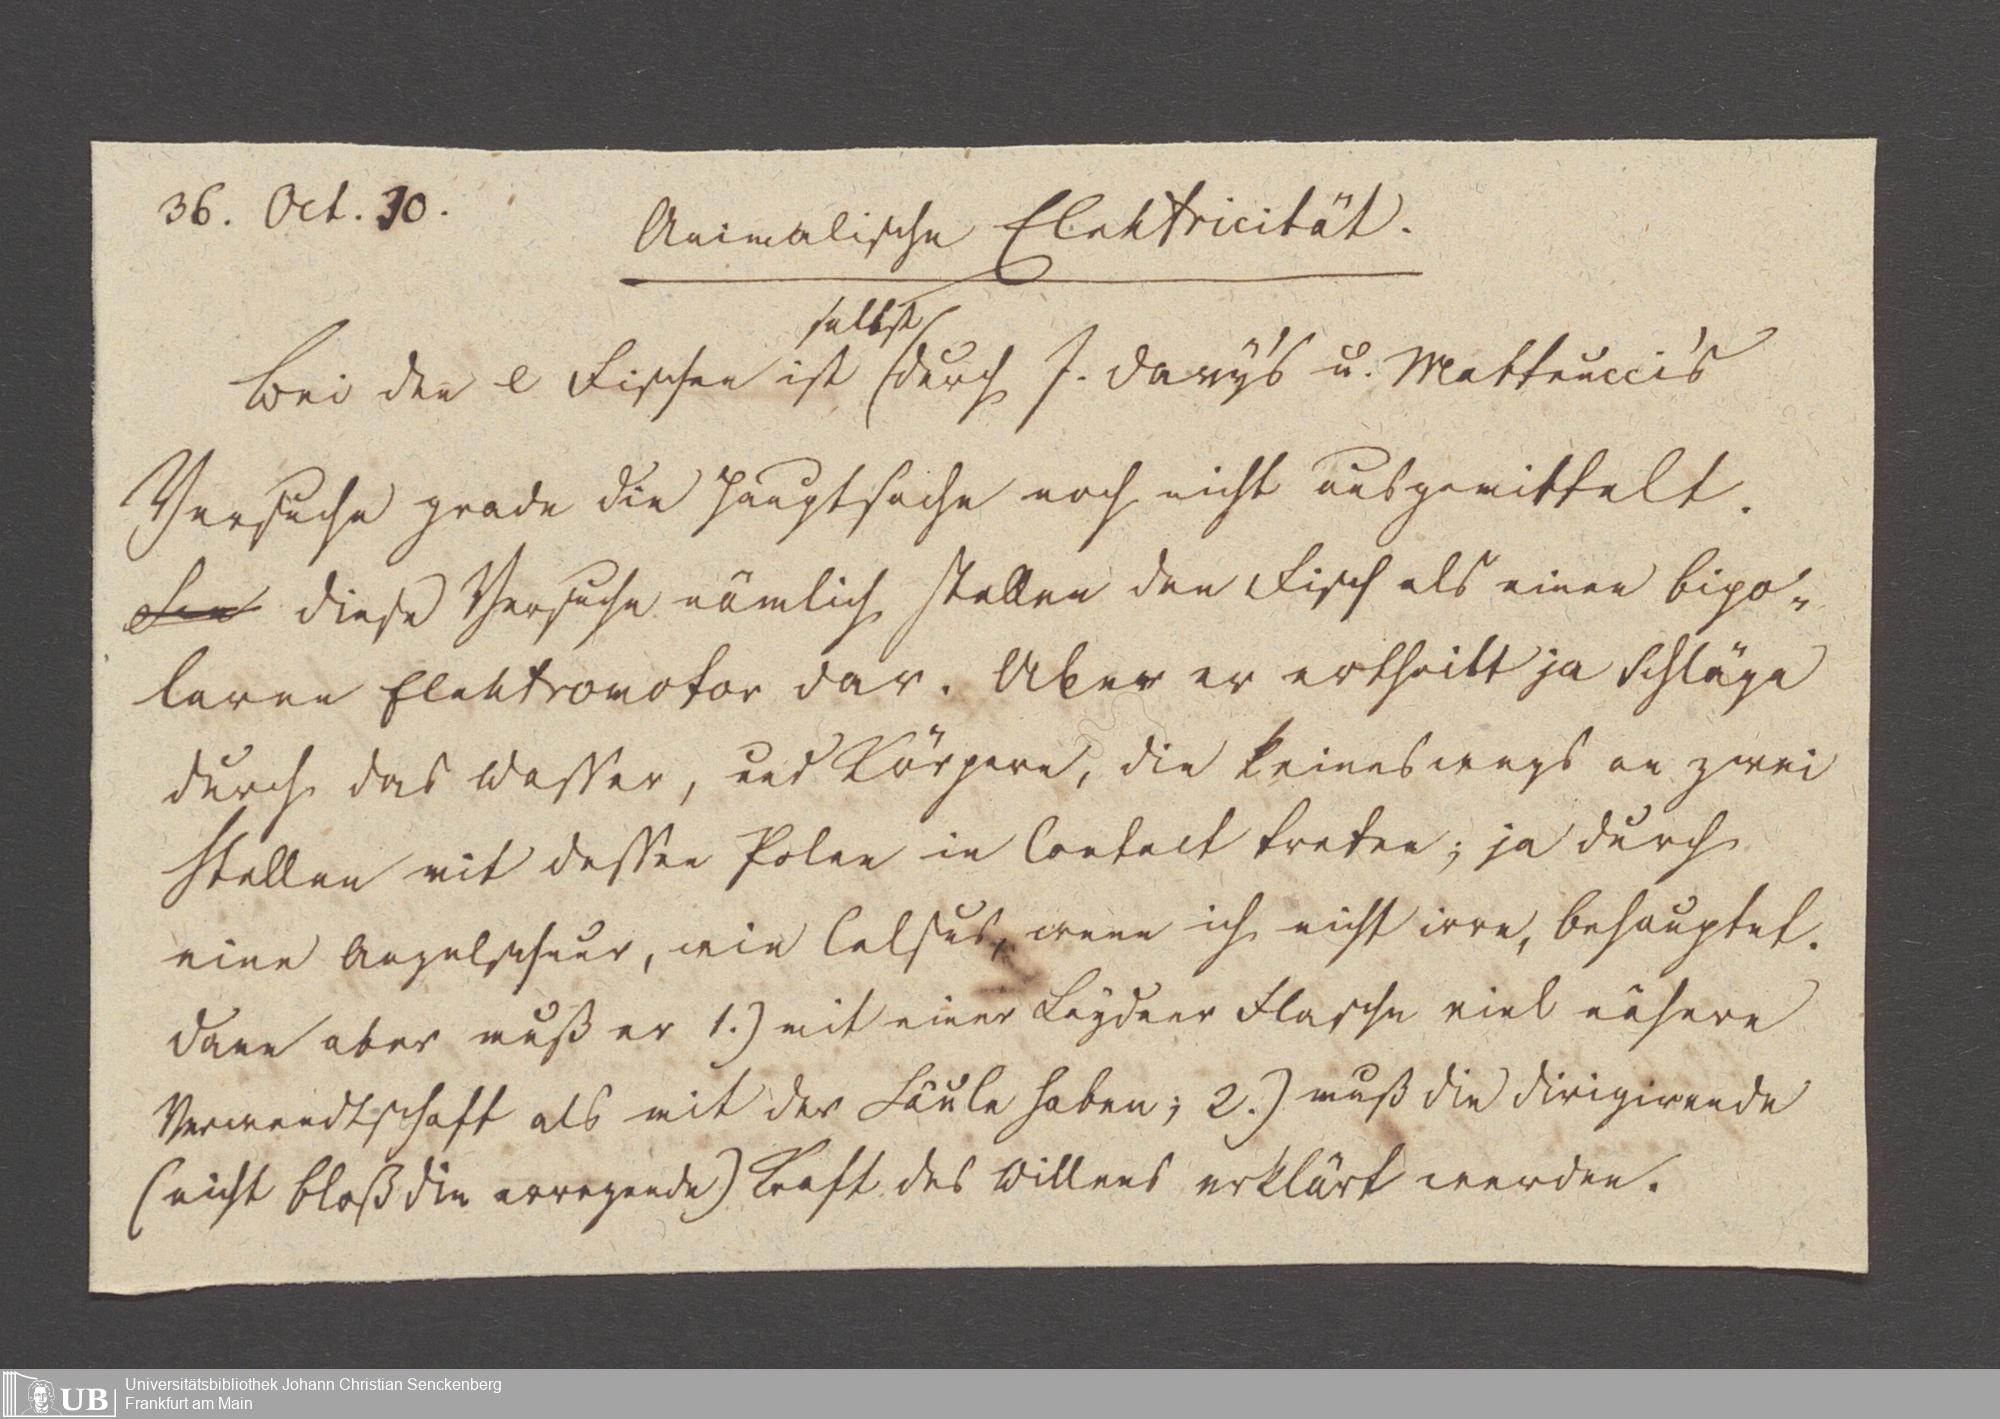 36. Oct. 30.
Animalische Elektricität.
selbst
Bei den e Fischen ist durch J. Davy's u. Matteucci's
Versuche grade die Hauptsache noch nicht ausgemittelt.
diese Versuche nämlich stellen den Fisch als einen bipo-
laren Elektromotor dar. Aber er ertheilt ja Schläge
durch das Wasser, und Körpern, die keineswegs an zwei
Stellen mit dessen Polen in Contact treten; ja durch
eine Angelschnur, wie Celsus, wenn ich nicht irre, behauptet.
Dann aber muß er 1.) mit einer Leydner Flasche viel nähere
Verwandtschaft als mit der Säule haben; 2.) muß die dirigirende
(nicht bloß die erregende) Kraft des Willens erklärt werden.
UB
Universitätsbibliothek Johann Christian Senckenberg
Frankfurt am Main